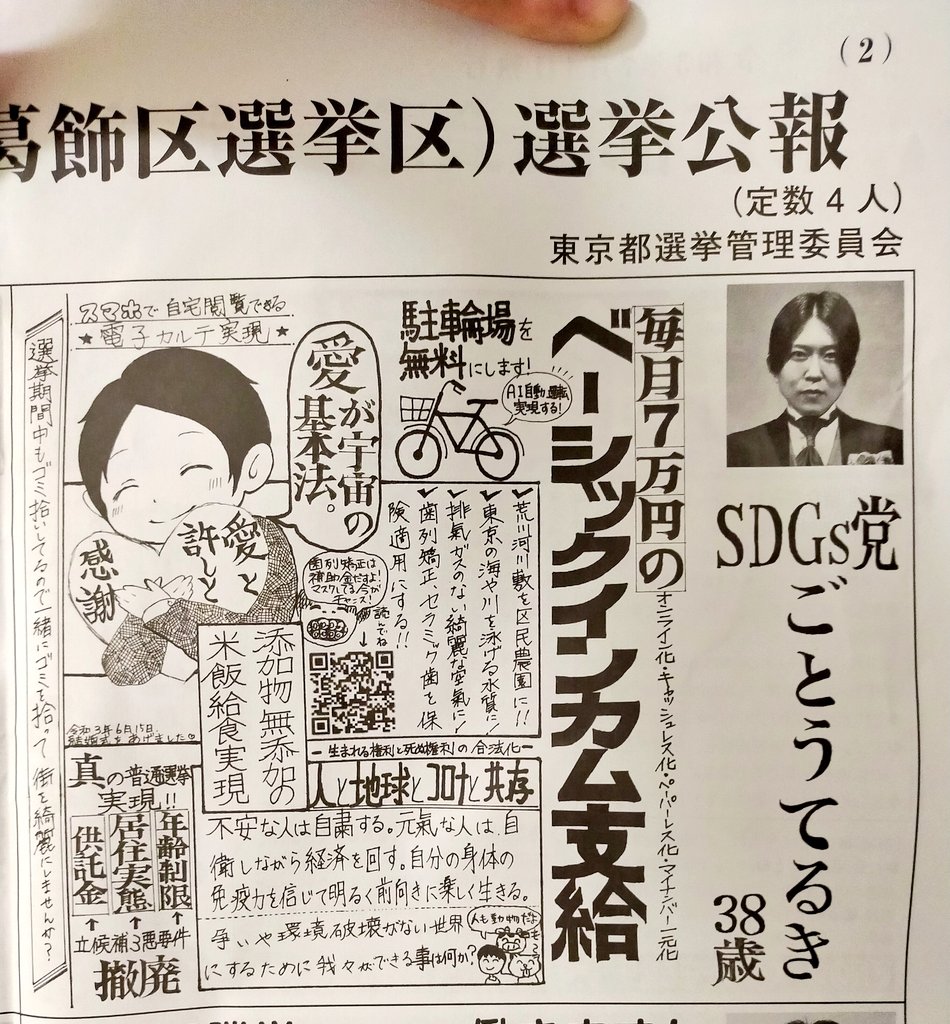 (2)
葛飾区選挙区）選挙公報
（定数４人）
東京都選挙管理委員会
SDGs党
ごとうてるき
38歳
毎月7万円の
ベーシックインカム支給
オンライン化・キャッシュレス化・ペーパーレス化・マイナンバー一元化
駐車輪場を
無料にします!
AI自動運転
実現する!
✓荒川河川敷を区民農園に!!
✓東京の海や川を泳げる水質に!
✓排氣ガスのない綺麗な空氣に!
✓歯列矯正、セラミック歯を保
険適用にする!!
愛が宇宙の
基本法。
スマホで自宅閲覧できる
★電子カルテ実現★
愛と
許しと
感謝
歯列矯正は
補助金だすよ!
マスクしてる今が
チャンス!
読んでね
↓
添加物無添加の
米飯給食実現
令和3年6月15日
結婚式をあげました♡
選挙期間中もゴミ拾いしてるので一緒にゴミを拾って街を綺麗にしませんか?
真の普通選挙
実現!!
年齢制限
居住実態
供託金
↑ ↑ ↑
立候補3悪要件
撤廃
―生まれる権利と死ぬ権利の合法化―
人と地球とコロナと共存
不安な人は自粛する。元氣な人は、自
衛しながら経済を回す。自分の身体の
免疫力を信じて明るく前向きに楽しく生きる。
争いや環境破壊がない世界
にするために我々ができる事は何か?
人も動物だよ